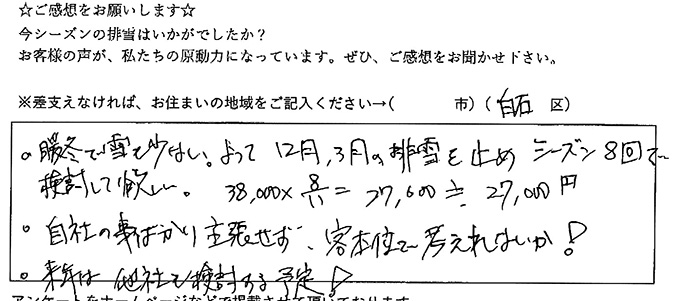 ☆ご感想をお願いします☆
今シーズンの排雪はいかがでしたか？
お客様の声が、私たちの原動力になっています。ぜひ、ご感想をお聞かせ下さい。
※差支えなければ、お住まいの地域をご記入ください→(　　　市) ( 白石　区)
。暖冬で雪も少ない。よって 12月,3月の排雪を止め シーズン8回で
検討して欲しい。 38,000×8/11＝27,600≒27,000円
。自社の事ばかり主張せず、客本位で考えれないか!
。来年は他社も検討する予定!
アンケートをホームページなどで掲載させて頂いております